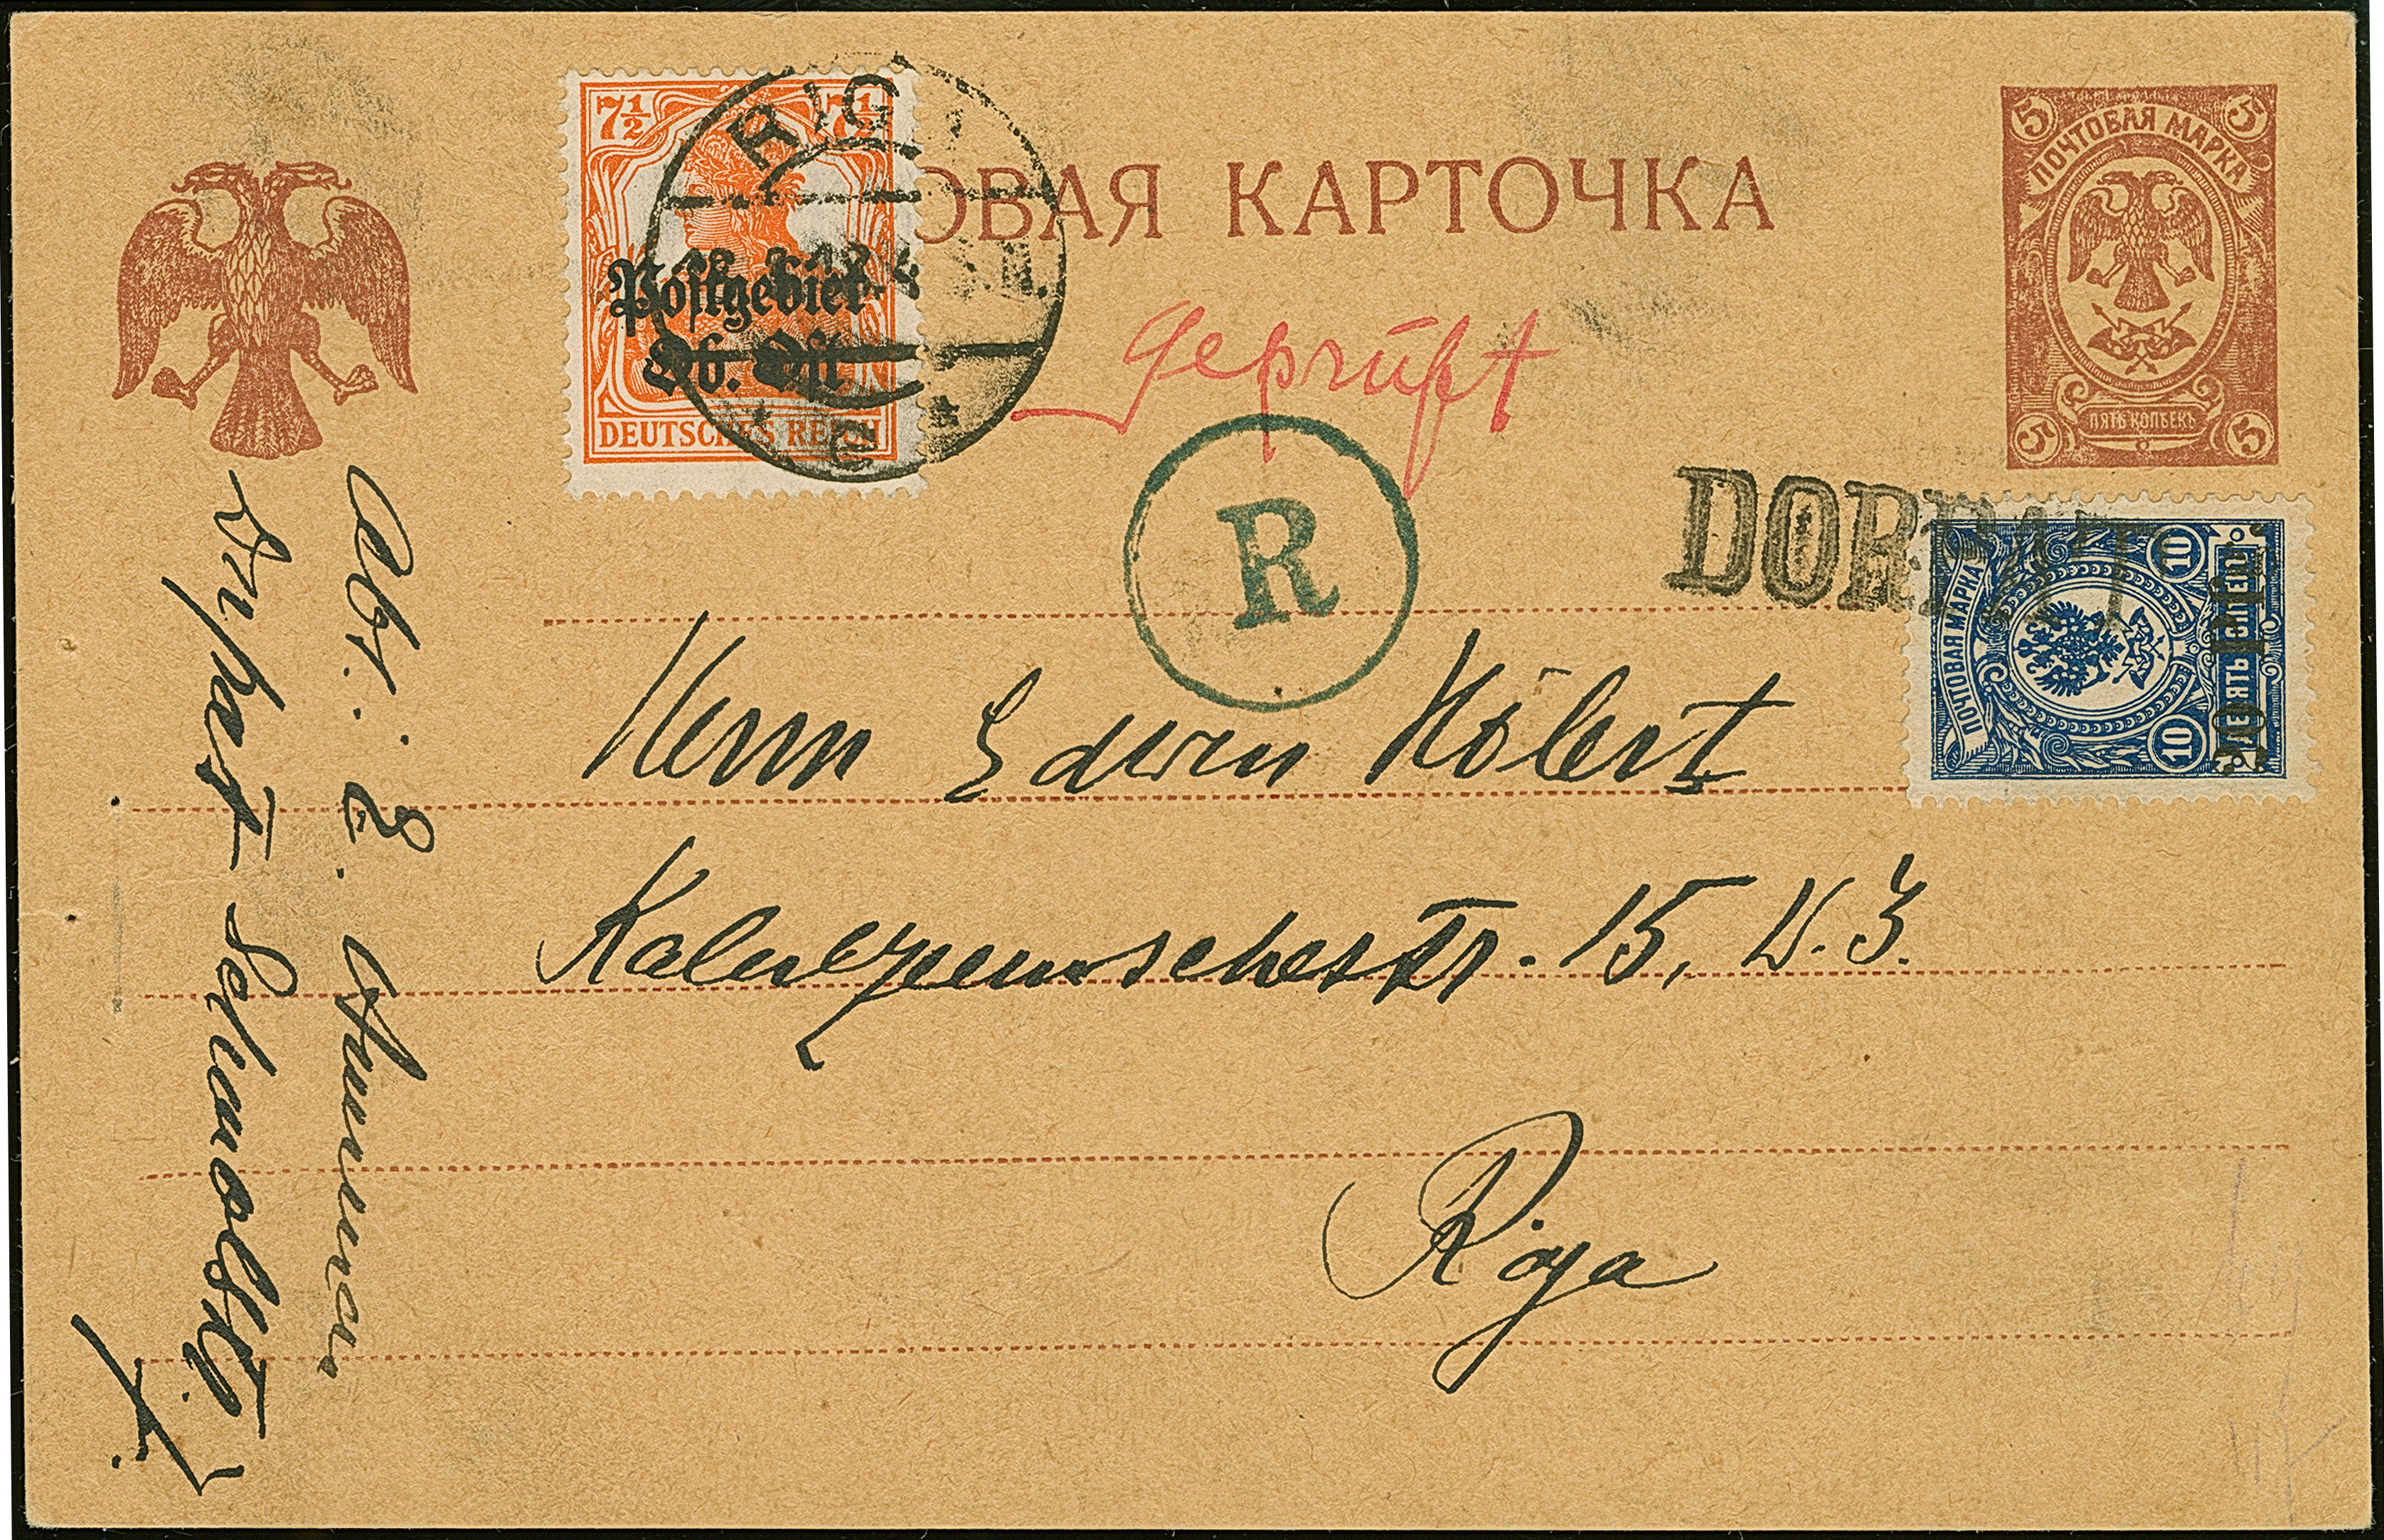 7½ 7½
Postgebiet
Ob. Ost
DEUTSCHES REICH
RIG
ОВАЯ КАРТОЧКА
5 5
ПОЧТОВАЯ МАРКА
ПЯТЬ КОПѢЕКЪ
5 5
geprüft
R
DORPAT
ПОЧТОВАЯ МАРКА
10 10
20 Pfg.
Herrn Edwin
Kalnezeemschestr. 15, W. 3.
Riga
Abs.: E.
Dorpat